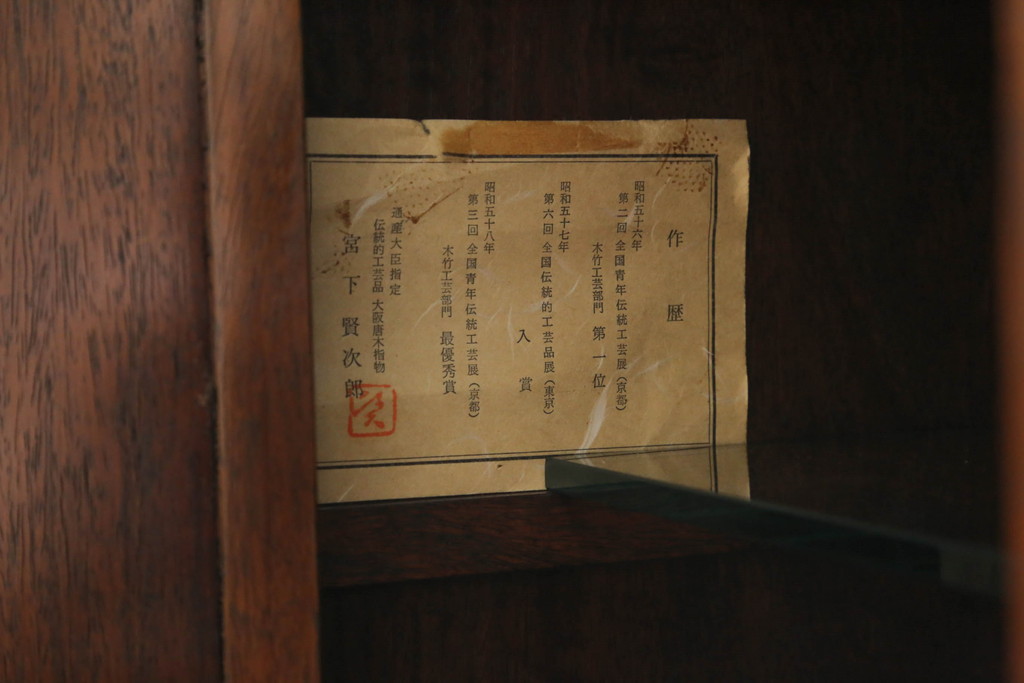 作歴
昭和五十六年
第二回 全国青年伝統工芸展(京都)
木竹工芸部門 第一位
昭和五十七年
第六回 全国伝統的工芸品展(東京)
入賞
昭和五十八年
第三回 全国青年伝統工芸展(京都)
木竹工芸部門 最優秀賞
通産大臣指定
伝統的工芸品 大阪唐木指物
宮下賢次郎